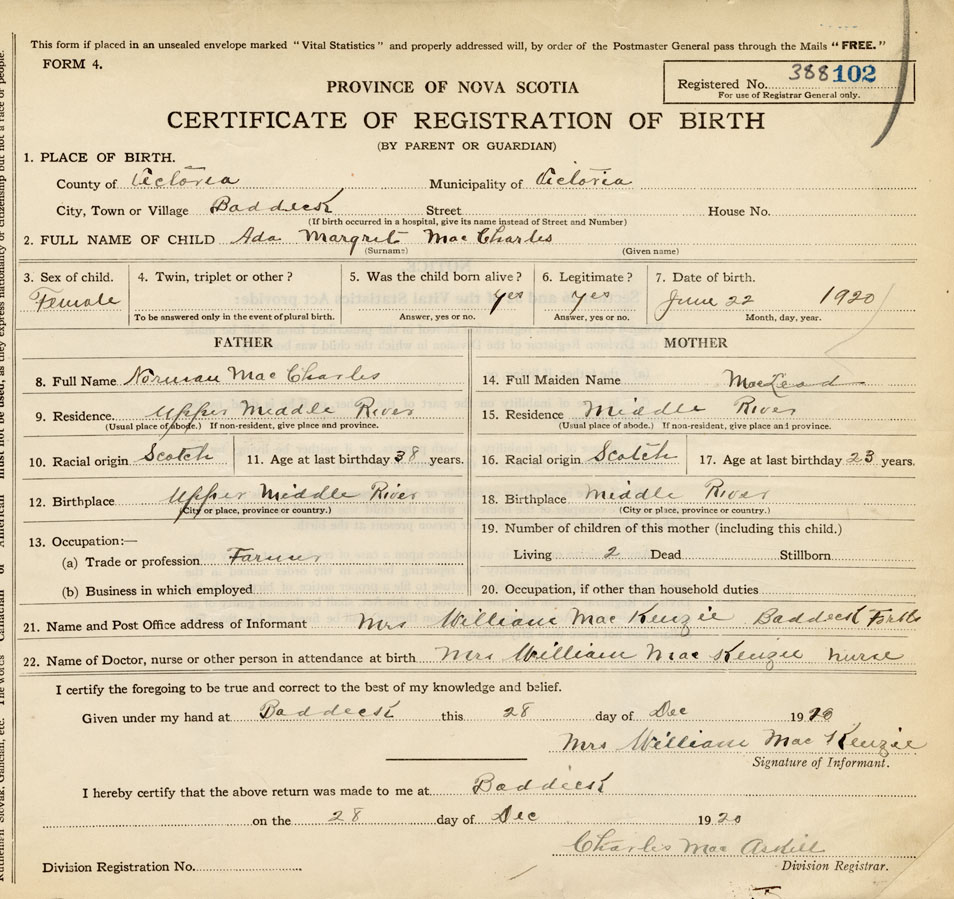 This form if placed in an unsealed envelope marked "Vital Statistics" and properly addressed will, by order of the Postmaster General pass through the Mails "FREE."
FORM 4.
Registered No. 388102
For use of Registrar General only.
PROVINCE OF NOVA SCOTIA
CERTIFICATE OF REGISTRATION OF BIRTH
(BY PARENT OR GUARDIAN)
1. PLACE OF BIRTH.
County of Victoria Municipality of Victoria
City, Town or Village Baddeck Street House No.
(If birth occurred in a hospital, give its name instead of Street and Number)
2. FULL NAME OF CHILD Ada Margret MacCharles
(Surname) (Given name)
3. Sex of child. 4. Twin, triplet or other? 5. Was the child born alive? 6. Legitimate? 7. Date of birth.
Female yes yes June 22 1920
To be answered only in the event of plural birth. Answer, yes or no. Answer, yes or no. Month, day, year.
FATHER
8. Full Name Norman MacCharles
9. Residence. Upper Middle River
(Usual place of abode.) If non-resident, give place and province.
10. Racial origin Scotch 11. Age at last birthday 38 years.
12. Birthplace Upper Middle River
(City or place, province or country.)
13. Occupation:—
(a) Trade or profession Farmer
(b) Business in which employed
MOTHER
14. Full Maiden Name MacLeod
15. Residence Middle River
(Usual place of abode.) If non-resident, give place and province.
16. Racial origin Scotch 17. Age at last birthday 23 years.
18. Birthplace Middle River
(City or place, province or country.)
19. Number of children of this mother (including this child.)
Living 2 Dead Stillborn
20. Occupation, if other than household duties
21. Name and Post Office address of Informant Mrs William MacKenzie Baddeck
22. Name of Doctor, nurse or other person in attendance at birth Mrs William MacKenzie nurse
I certify the foregoing to be true and correct to the best of my knowledge and belief.
Given under my hand at Baddeck this 28 day of Dec 1920
Mrs William MacKenzie
Signature of Informant.
I hereby certify that the above return was made to me at Baddeck
on the 28 day of Dec 1920
Charles MacAskill
Division Registrar.
Division Registration No.